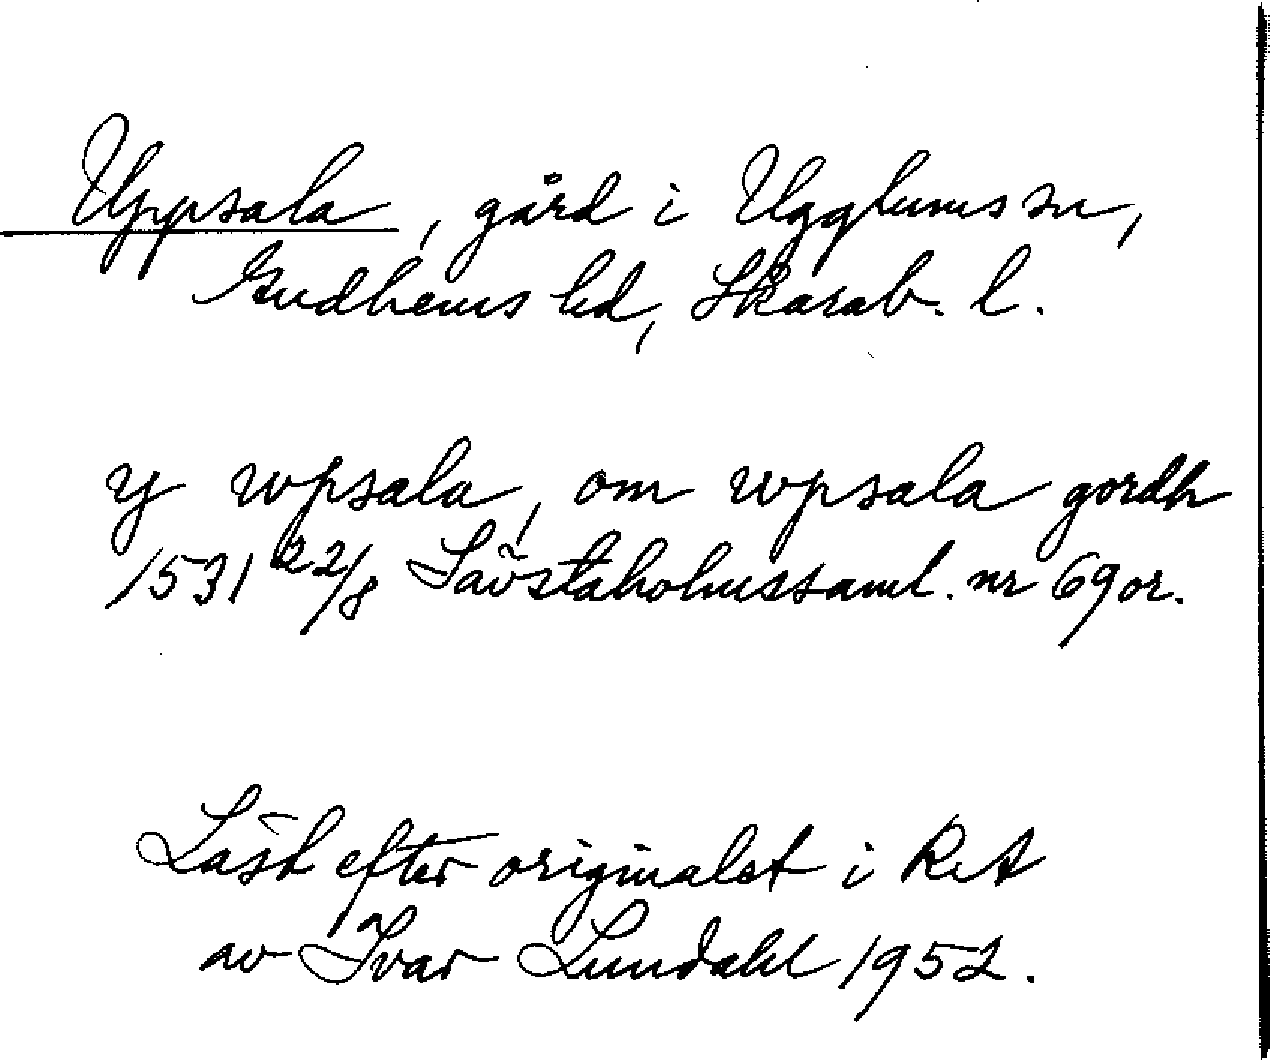 Uppsala, gård i Ugglums sn,
Gudhems hd, Skarab. l.
y wpsala, om wpsala gordh
1531 22/8 Sävstaholmssaml. nr 69 or.
Läst efter originalet i RA
av Ivar Lundahl 1952.